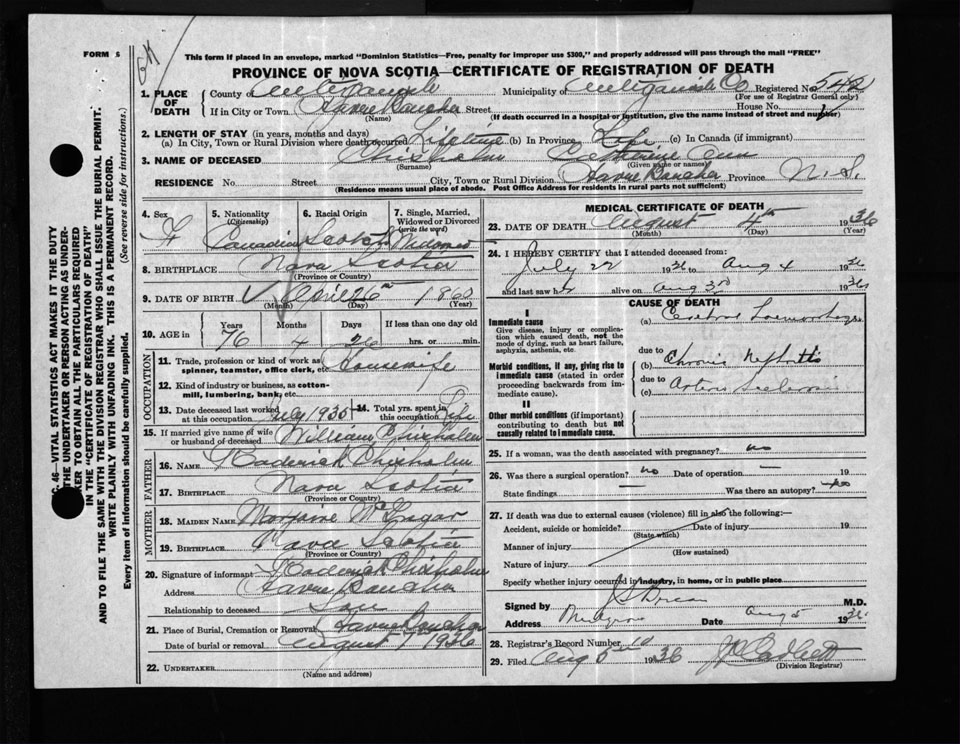 FORM 5
This form if placed in an envelope, marked "Dominion Statistics—Free, penalty for improper use $300," and properly addressed will pass through the mail "FREE"
PROVINCE OF NOVA SCOTIA—CERTIFICATE OF REGISTRATION OF DEATH
1. PLACE OF DEATH County of Antigonish Municipality of Antigonish Co Registered No. 542
(For use of Registrar General only)
If in City or Town Havre Boucher Street House No.
(Name) (If death occurred in a hospital or institution, give the name instead of street and number)
2. LENGTH OF STAY (in years, months and days)
(a) In City, Town or Rural Division where death occurred Lifetime (b) In Province Life (c) In Canada (if immigrant)
3. NAME OF DECEASED Chisholm Catherine Ann
(Surname) (Given name or names)
RESIDENCE No. Street City, Town or Rural Division Havre Boucher Province N. S.
(Residence means usual place of abode. Post Office Address for residents in rural parts not sufficient)
4. Sex 5. Nationality (Citizenship) 6. Racial Origin 7. Single, Married, Widowed or Divorced (write the word)
F Canadian Scotch Widowed
8. BIRTHPLACE Nova Scotia
(Province or Country)
9. DATE OF BIRTH April 26th 1860
(Month) (Day) (Year)
10. AGE in Years Months Days If less than one day old
76 4 26 hrs. or min.
OCCUPATION
11. Trade, profession or kind of work as spinner, teamster, office clerk, etc. Housewife
12. Kind of industry or business, as cotton-mill, lumbering, bank, etc.
13. Date deceased last worked at this occupation July 1936 14. Total yrs. spent in this occupation Life
15. If married give name of wife or husband of deceased William Chisholm
FATHER
16. Name Roderick Chisholm
17. Birthplace Nova Scotia
(Province or Country)
MOTHER
18. Maiden Name
19. Birthplace Nova Scotia
(Province or Country)
20. Signature of informant Roderick Chisholm
Address Havre Boucher
Relationship to deceased Son
21. Place of Burial, Cremation or Removal Havre Boucher
Date of burial or removal August 7 1936
22. UNDERTAKER
(Name and address)
MEDICAL CERTIFICATE OF DEATH
23. DATE OF DEATH August 4th 1936
(Month) (Day) (Year)
24. I HEREBY CERTIFY that I attended deceased from:
July 22 1936 to Aug 4 1936
and last saw her alive on Aug 3rd 1936
CAUSE OF DEATH
I
Immediate cause
Give disease, injury or complication which caused death, not the mode of dying, such as heart failure, asphyxia, asthenia, etc.
(a) Cerebral haemorrhage
due to
Morbid conditions, if any, giving rise to immediate cause (stated in order proceeding backwards from immediate cause).
(b) Chronic Nephritis
due to
(c) Arterio Sclerosis
II
Other morbid conditions (if important) contributing to death but not causally related to immediate cause.
25. If a woman, was the death associated with pregnancy? no
26. Was there a surgical operation? no Date of operation — 19
State findings — Was there an autopsy? no
27. If death was due to external causes (violence) fill in also the following:—
Accident, suicide or homicide? Date of injury 19
(State which)
Manner of injury
(How sustained)
Nature of injury
Specify whether injury occurred in industry, in home, or in public place
Signed by M.D.
Address Mulgrave Date Aug 5 1936
28. Registrar's Record Number 10
29. Filed Aug 5th 1936
(Division Registrar)
C. 46—VITAL STATISTICS ACT MAKES IT THE DUTY
THE UNDERTAKER OR PERSON ACTING AS UNDER-
KER TO OBTAIN ALL THE PARTICULARS REQUIRED
IN THE "CERTIFICATE OF REGISTRATION OF DEATH"
AND TO FILE THE SAME WITH THE DIVISION REGISTRAR WHO SHALL ISSUE THE BURIAL PERMIT.
WRITE PLAINLY WITH UNFADING INK. THIS IS A PERMANENT RECORD.
Every item of information should be carefully supplied. (See reverse side for instructions.)